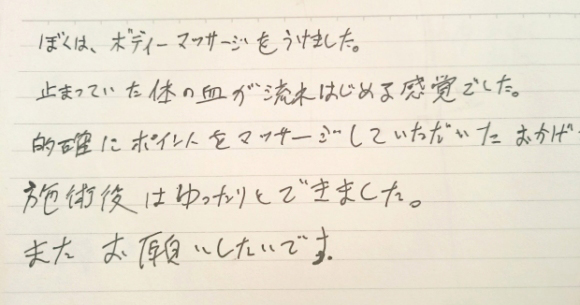 ぼくは、ボディーマッサージをうけました。
止まっていた体の血が流れはじめる感覚でした。
的確にポイントをマッサージしていただいたおかげ
施術後はゆったりとできました。
またお願いしたいです.